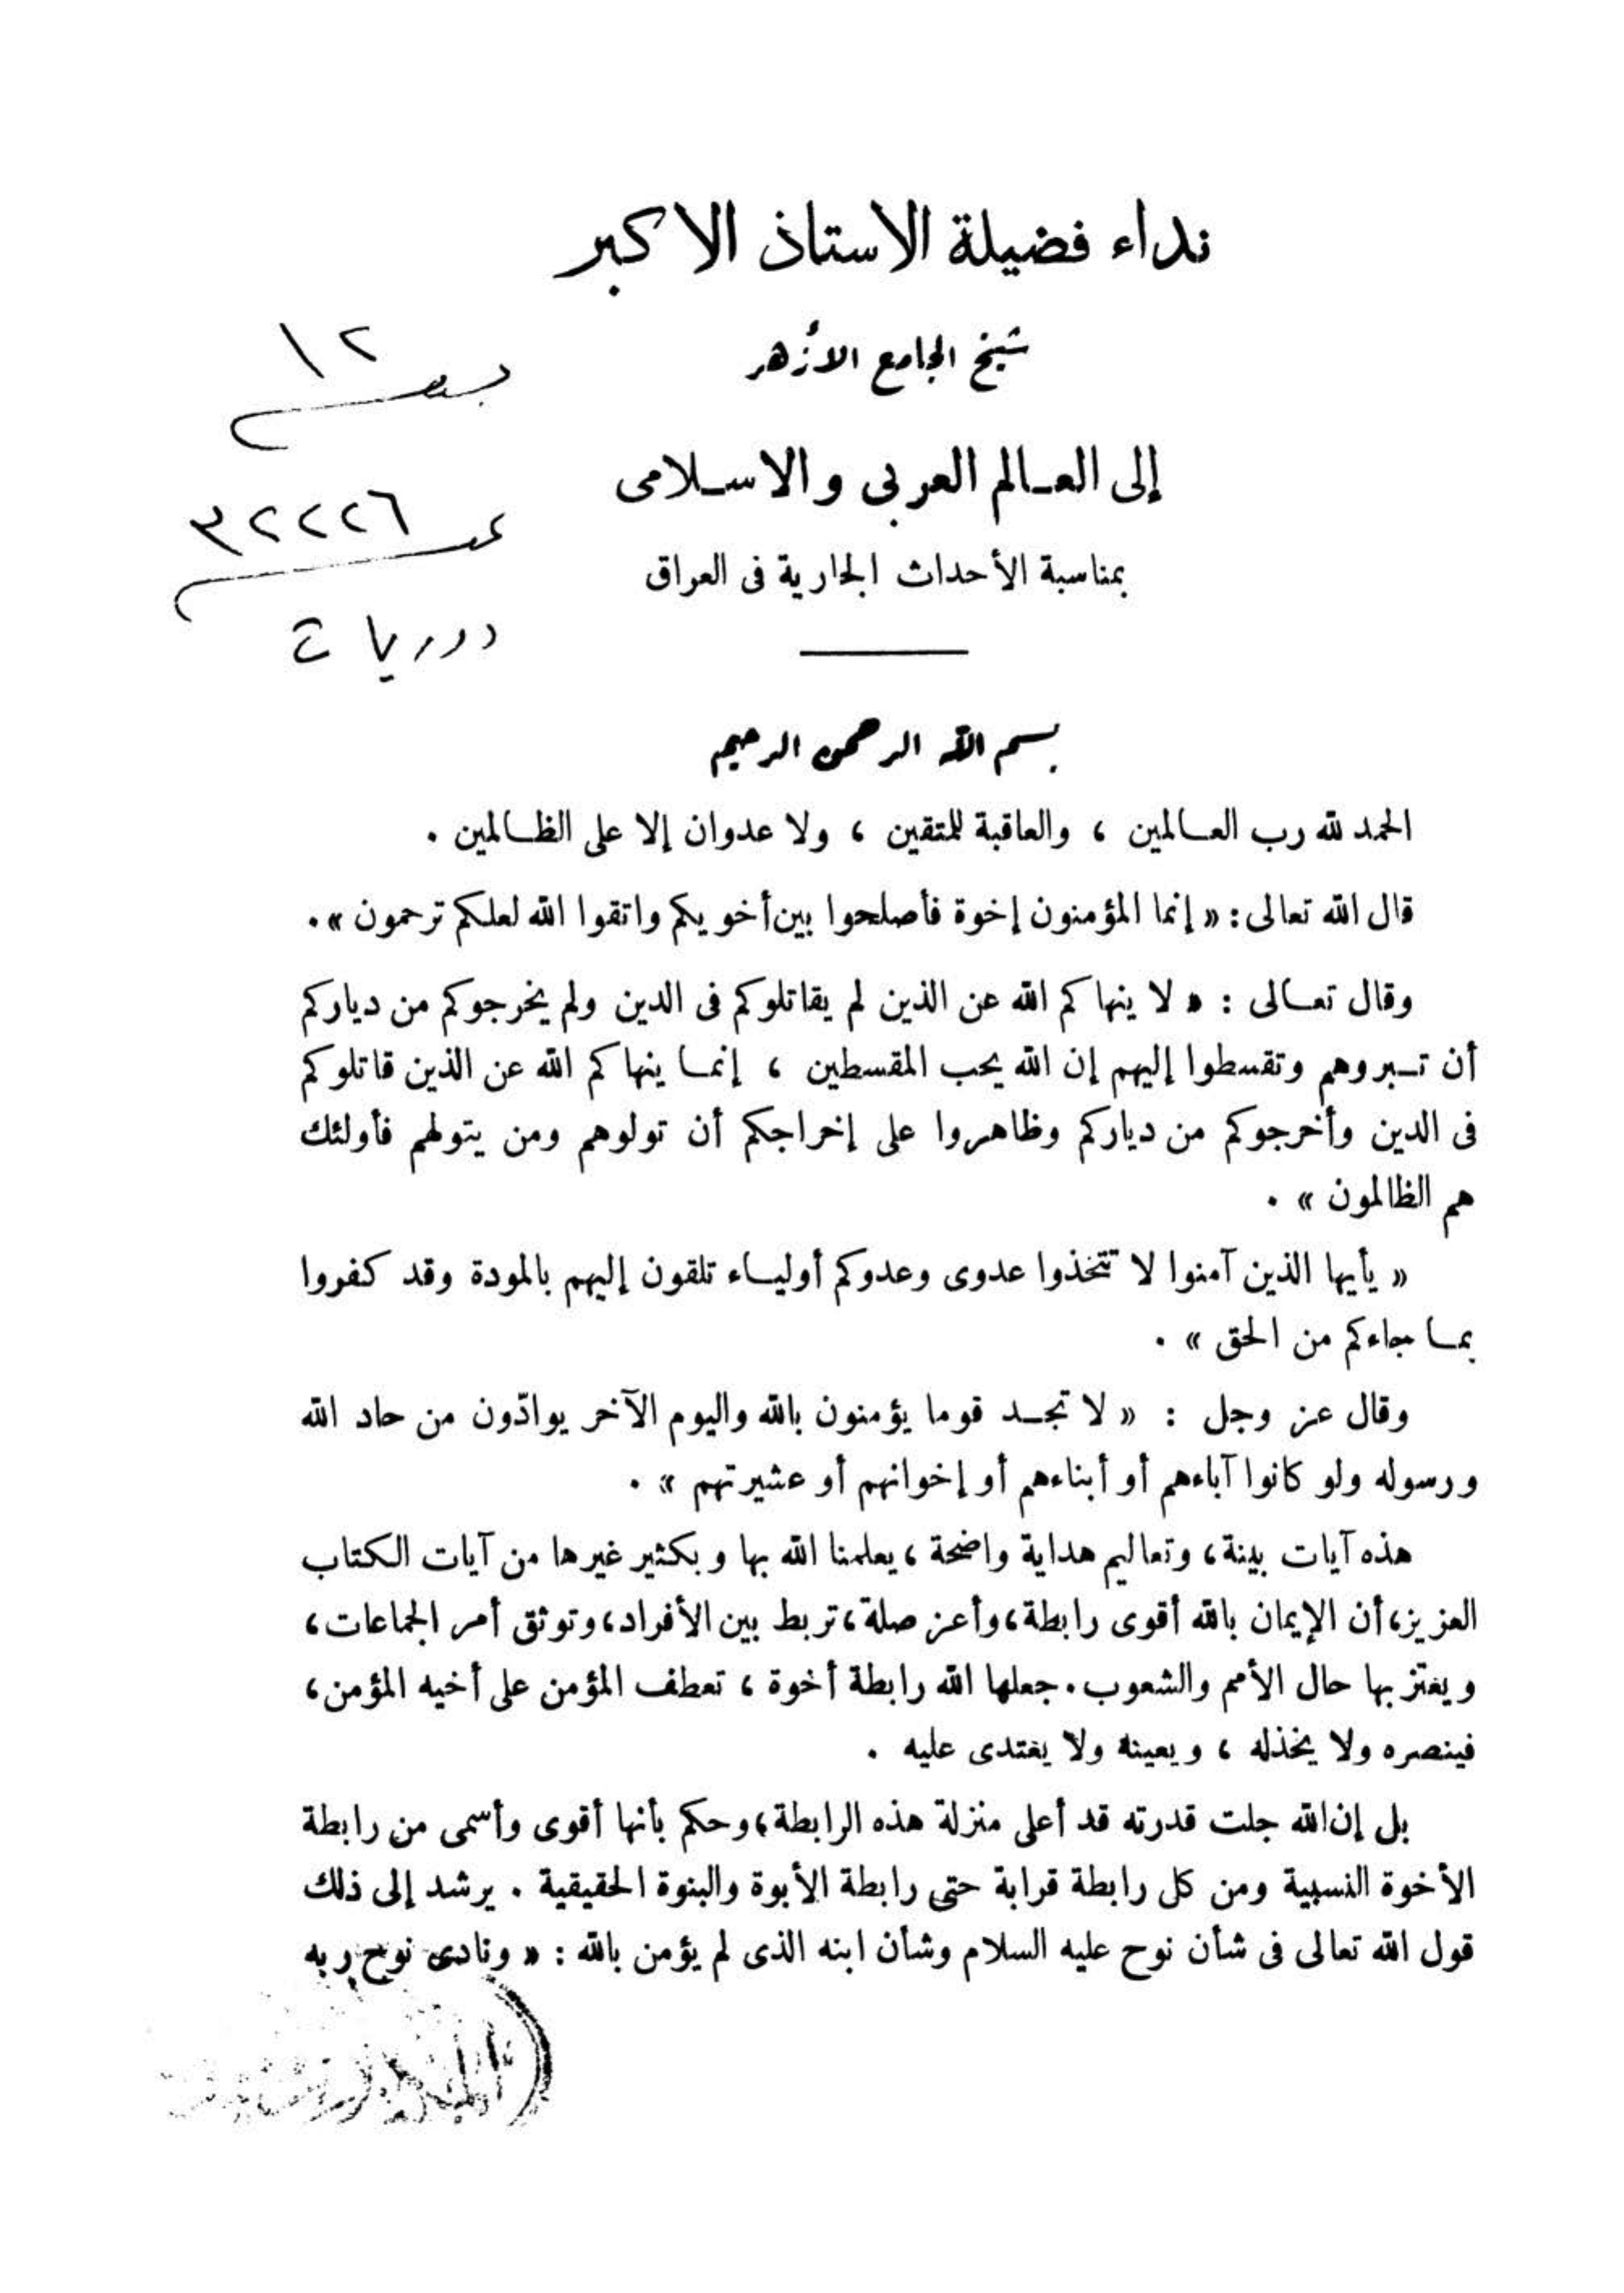 نداء فضيلة الاستاذ الاكبر
شيخ الجامع الأزهر
١٢
إلى العـالم العربى والاسـلامى
٣٢٢٢٦
بمناسبة الأحداث الجارية فى العراق
دوريات
بسم الله الرحمن الرحيم
الحمد لله رب العـالمين ، والعاقبة للمتقين ، ولا عدوان إلا على الظـالمين .
قال الله تعالى : « إنما المؤمنون إخوة فأصلحوا بين أخويكم واتقوا الله لعلكم ترحمون » .
وقال تعـالى : « لا ينهاكم الله عن الذين لم يقاتلوكم فى الدين ولم يخرجوكم من دياركم
أن تـبروهم وتقسطوا إليهم إن الله يحب المقسطين ، إنمـا ينهاكم الله عن الذين قاتلوكم
فى الدين وأخرجوكم من دياركم وظاهروا على إخراجكم أن تولوهم ومن يتولهم فأولئك
هم الظالمون » .
« يأيها الذين آمنوا لا تتخذوا عدوى وعدوكم أوليـاء تلقون إليهم بالمودة وقد كفروا
بمـا جاءكم من الحق » .
وقال عز وجل : « لا تجـد قوما يؤمنون بالله واليوم الآخر يوادّون من حاد الله
ورسوله ولو كانوا آباءهم أو أبناءهم أو إخوانهم أو عشيرتهم » .
هذه آيات بينة ، وتعاليم هداية واضحة ، يعلمنا الله بها وبكثير غيرها من آيات الكتاب
العزيز ، أن الإيمان بالله أقوى رابطة ، وأعز صلة ، تربط بين الأفراد ، وتوثق أمر الجماعات ،
ويعتز بها حال الأمم والشعوب . جعلها الله رابطة أخوة ، تعطف المؤمن على أخيه المؤمن ،
فينصره ولا يخذله ، ويعينه ولا يعتدى عليه .
بل إن الله جلت قدرته قد أعلى منزلة هذه الرابطة ، وحكم بأنها أقوى وأسمى من رابطة
الأخوة النسبية ومن كل رابطة قرابة حتى رابطة الأبوة والبنوة الحقيقية . يرشد إلى ذلك
قول الله تعالى فى شأن نوح عليه السلام وشأن ابنه الذى لم يؤمن بالله : « ونادى نوح ربه